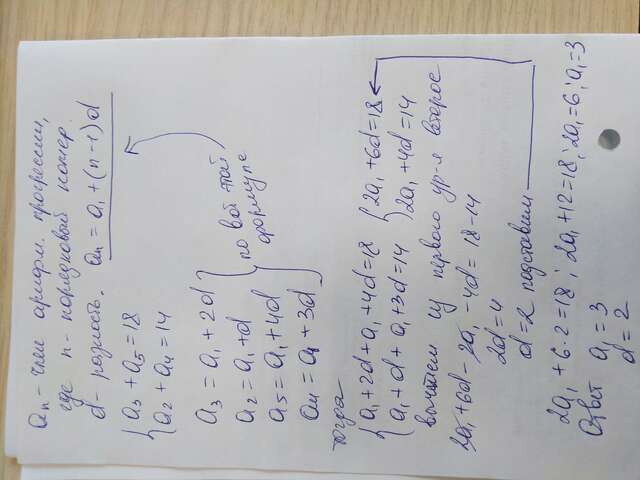 an - член арифм. прогрессии,
где n - порядковый номер.
d - разность. an = a1 + (n-1)d
{a3 + a5 = 18
a2 + a4 = 14
a3 = a1 + 2d
a2 = a1 + d
a5 = a1 + 4d
a4 = a1 + 3d
по вот этой
формуле
тогда
{a1 + 2d + a1 + 4d = 18 {2a1 + 6d = 18
a1 + d + a1 + 3d = 14 2a1 + 4d = 14
вычтем из первого ур-я второе
2a1 + 6d - 2a1 - 4d = 18 - 14
2d = 4
d = 2 подставим
2a1 + 6·2 = 18; 2a1 + 12 = 18; 2a1 = 6; a1 = 3
Ответ a1 = 3
d = 2